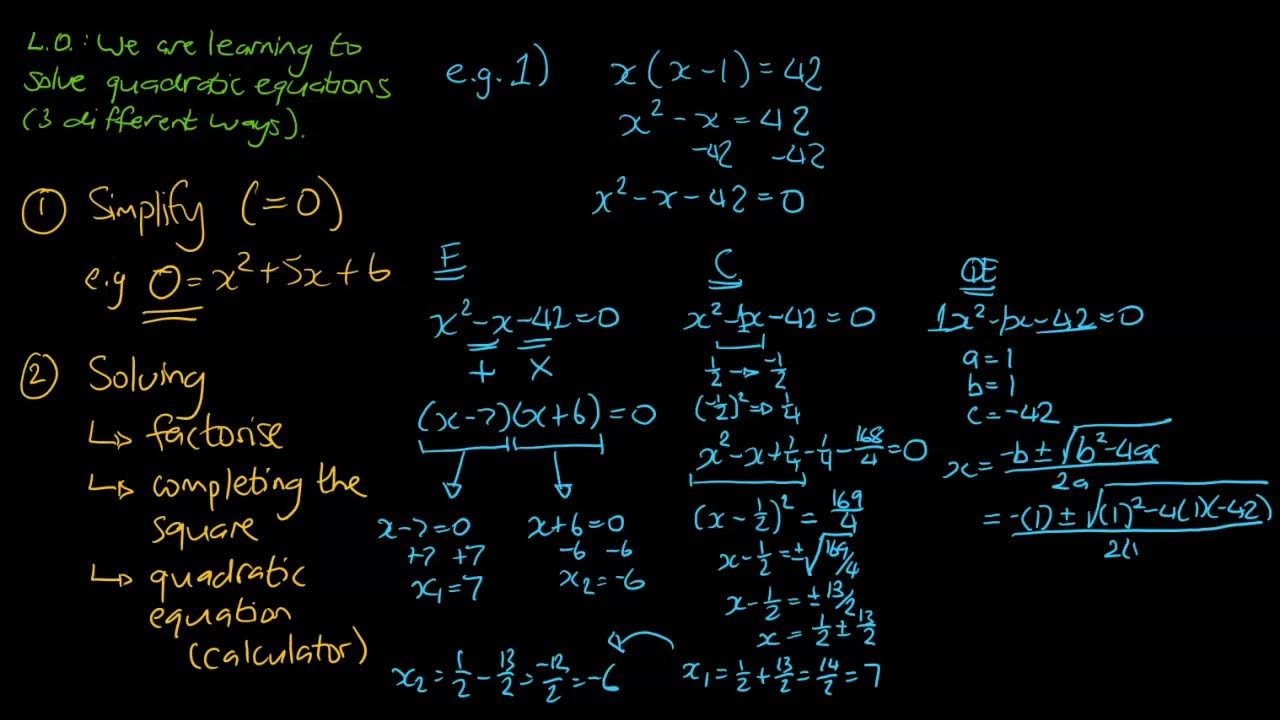 L.O.: We are learning to
solve quadratic equations
(3 different ways).
① Simplify (=0)
e.g 0 = x²+5x+6
② Solving
↳ factorise
↳ completing the
square
↳ quadratic
equation
(calculator)
e.g. 1) x(x-1)=42
x²-x=42
-42 -42
x²-x-42=0
F
x²-x-42=0
+ X
(x-7)(x+6)=0
x-7=0 x+6=0
+7 +7 -6 -6
x₁=7 x₂=-6
C
x²-1x-42=0
1/2 → -1/2
(-1/2)² ⇒ 1/4
x²-x+1/4-1/4-168/4=0
(x-1/2)²=169/4
x-1/2=±√169/4
x-1/2=±13/2
x=1/2±13/2
x₁=1/2+13/2=14/2=7
x₂=1/2-13/2=-12/2=-6
QE
1x²-1x-42=0
a=1
b=1
c=-42
x=-b±√b²-4ac/2a
=-(1)±√(1)²-4(1)(-42)/2(1